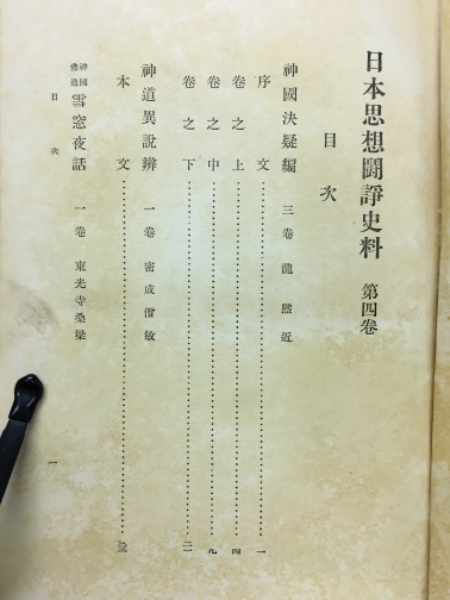 日本思想鬪諍史料 第四卷
目次
神國決疑編 三卷 龍熙近
序文……一
卷之上……四
卷之中……九
卷之下……
神道異說辨 一卷 密成僧敏
本文……
神國佛道 雪窓夜話 一卷 東光寺桑梁
目次 一